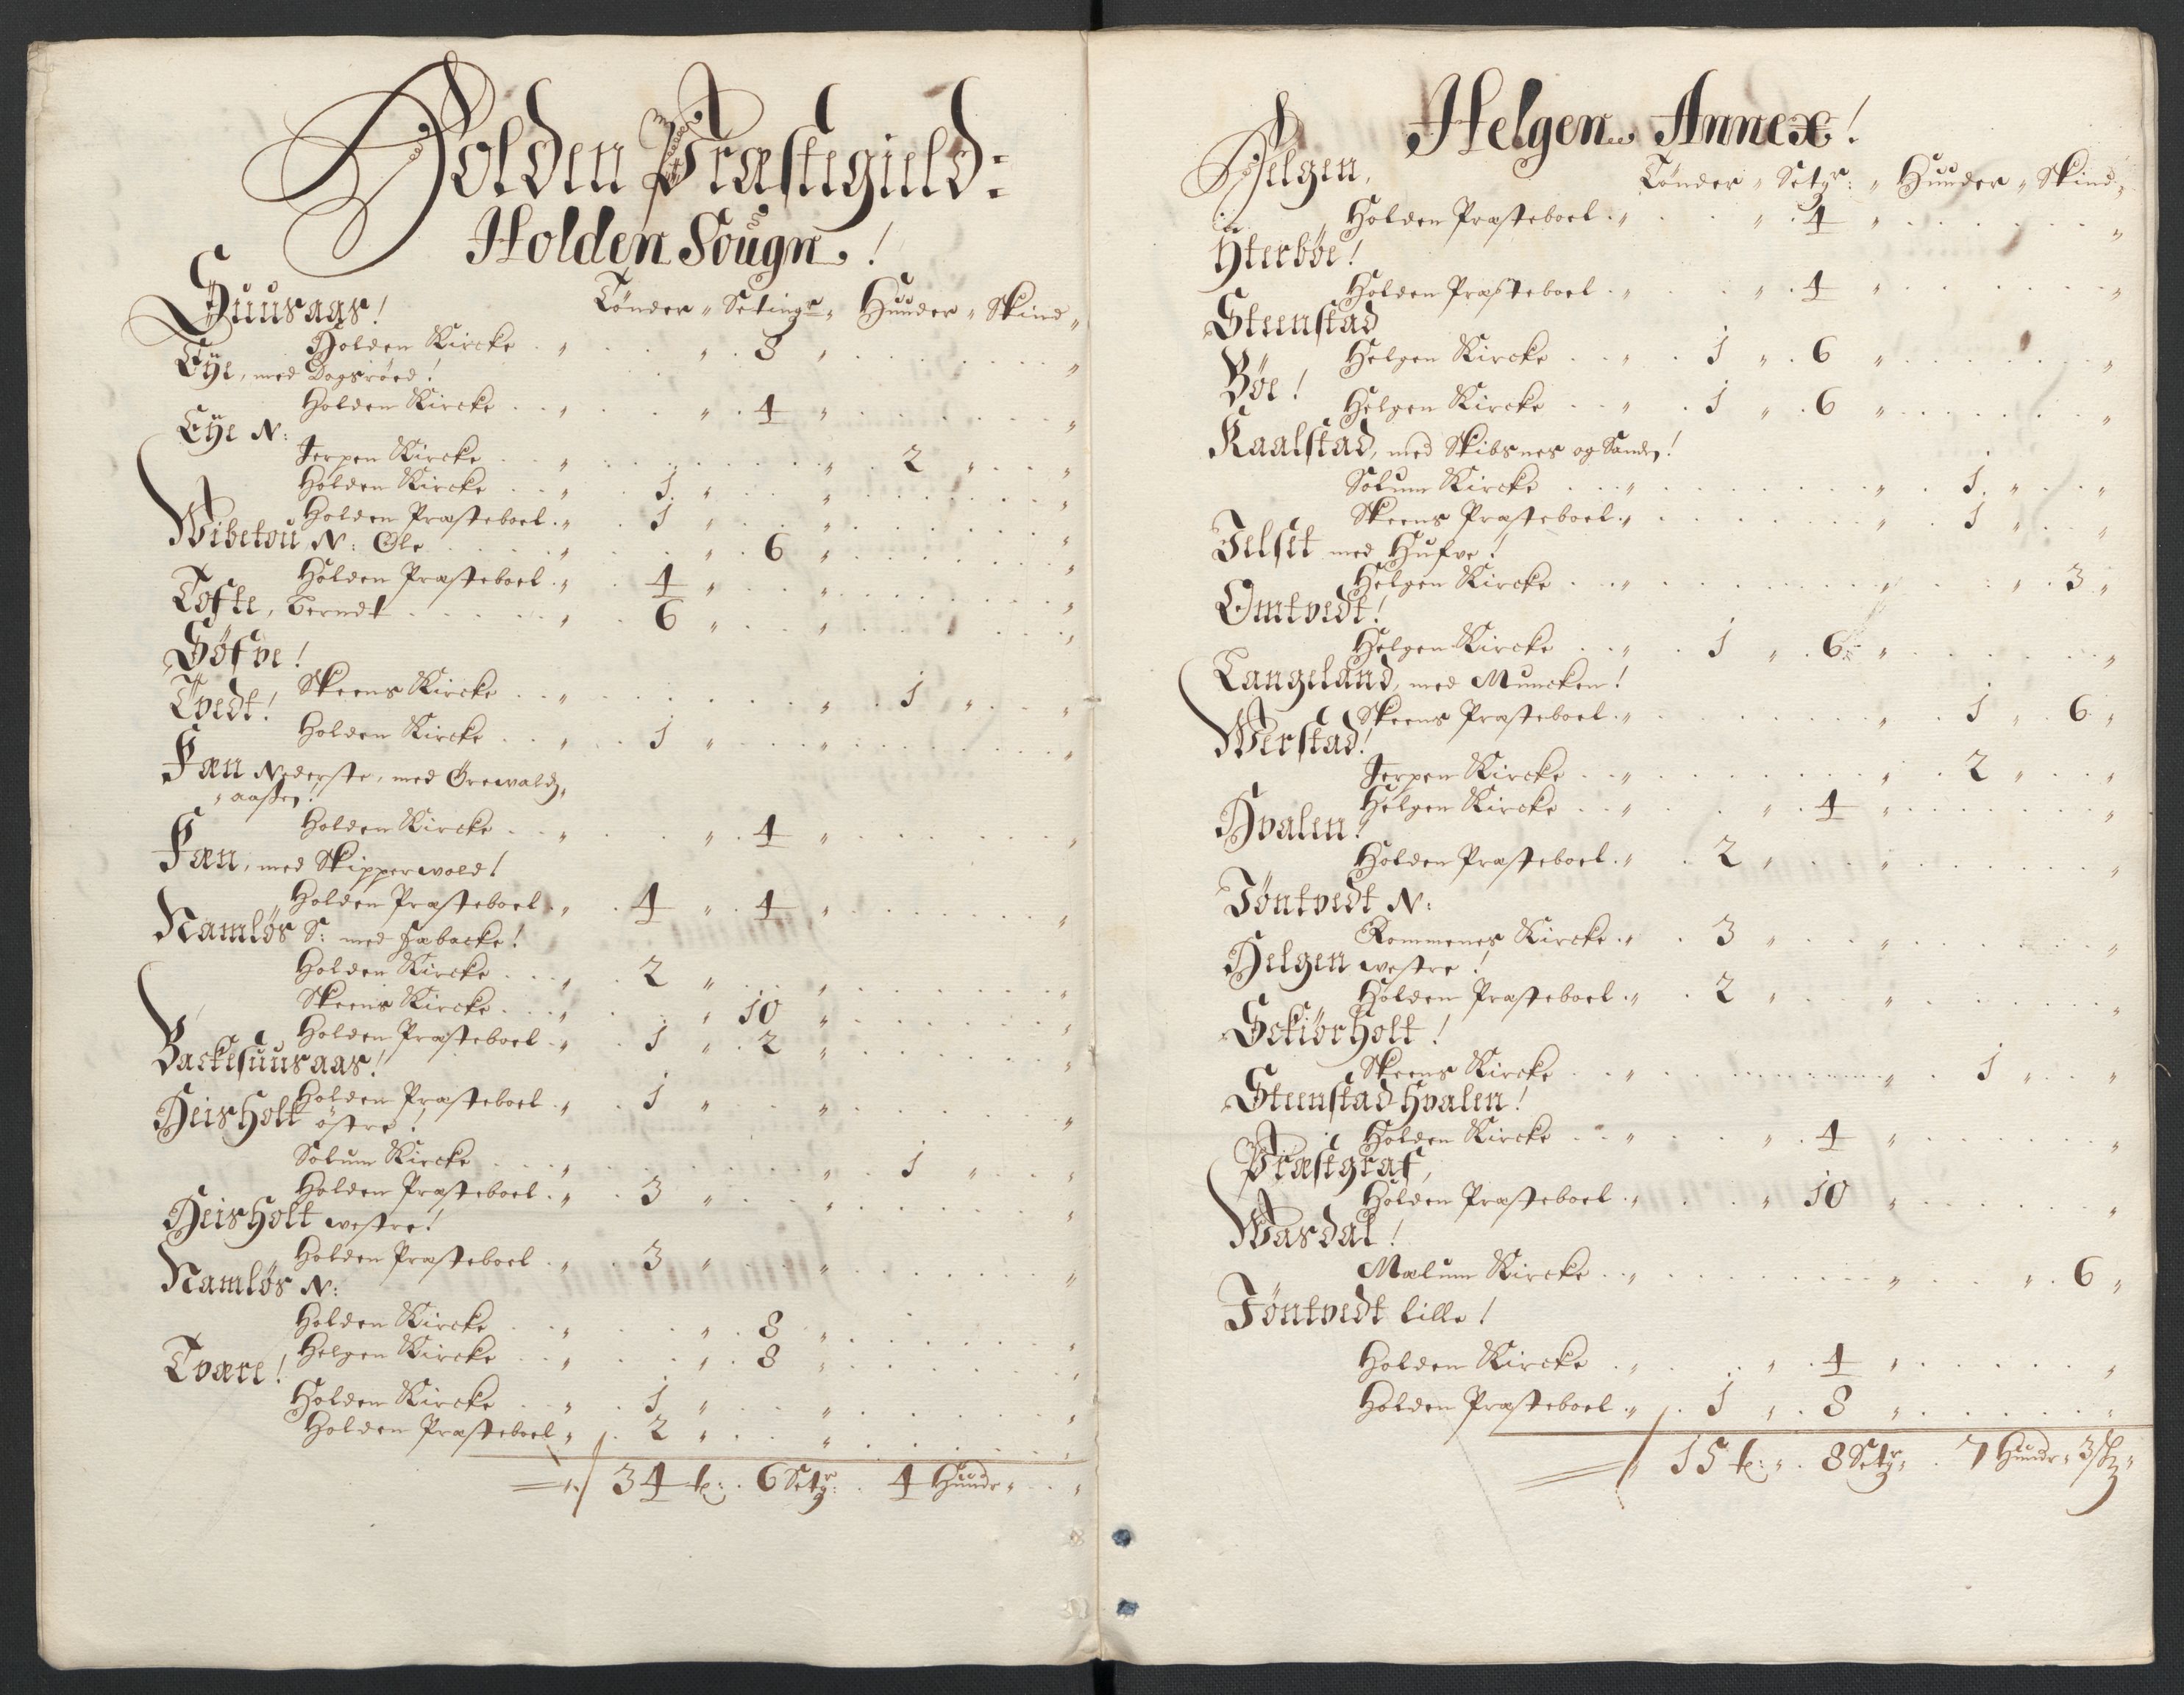 Holden Præstegield:
Holden Sougn!
Suusaas!
Tønder Setingr Huuder Skind
Holden Kircke 8
Eÿe, med Dagsrøed!
Holden Kircke 4
Eÿe N:
Jerpen Kircke 2
Holden Kircke 1
Holden Præsteboel 1
Wibetou N: Ole 6
Holden Præsteboel 4
Tofte, Berndt 6
Søfve!
Skeens Kircke 1
Tvedt!
Holden Kircke 1
Fæn Nederste, med Örewald
aasen!
Holden Kircke 4
Fæn, med Skipperwold!
Holden Præsteboel 4 4
Namløs S: med Habacke!
Holden Kircke 2
Skeens Kircke 10
Holden Præsteboel 1 2
Backesuusaas!
Holden Præsteboel 1
Heisholt östre!
Solum Kircke 1
Holden Præsteboel 3
Heisholt westre!
Holden Præsteboel 3
Namløs N:
Holden Kircke 8
Helgen Kircke 8
Tvære!
Holden Kircke 1
Holden Præsteboel 2
34 t: 6 Setgr: 4 Huudr
Helgen Annex!
Helgen,
Tønder Setgr: Huuder Skind
Holden Præsteboel 4
Ÿterbøe!
Holden Præsteboel 4
Steenstad
Helgen Kircke 1 6
Bøe!
Helgen Kircke 1 6
Kaalstad, med Skibsnes og Sanden!
Solum Kircke 1
Skeens Præsteboel 1
Jelset med Hufve!
Helgen Kircke 3
Omtvedt!
Helgen Kircke 1 6
Langeland, med Muncken!
Skeens Præsteboel 1 6
Werstad!
Jerpen Kircke 2
Helgen Kircke 4
Hvalen!
Holden Præsteboel 2
Jöntvedt N:
Rommenes Kircke 3
Helgen westre!
Holden Præsteboel 2
Sckiörholt!
Skeens Kircke 1
Steenstad Hvalen!
Holden Kircke 4
Præstgraf,
Holden Præsteboel 10
Wasdal!
Mælum Kircke 6
Jöntvedt lille!
Holden Kircke 4
Holden Præsteboel 1 8
15 t: 8 Setgr: 7 Huudr 3 sk